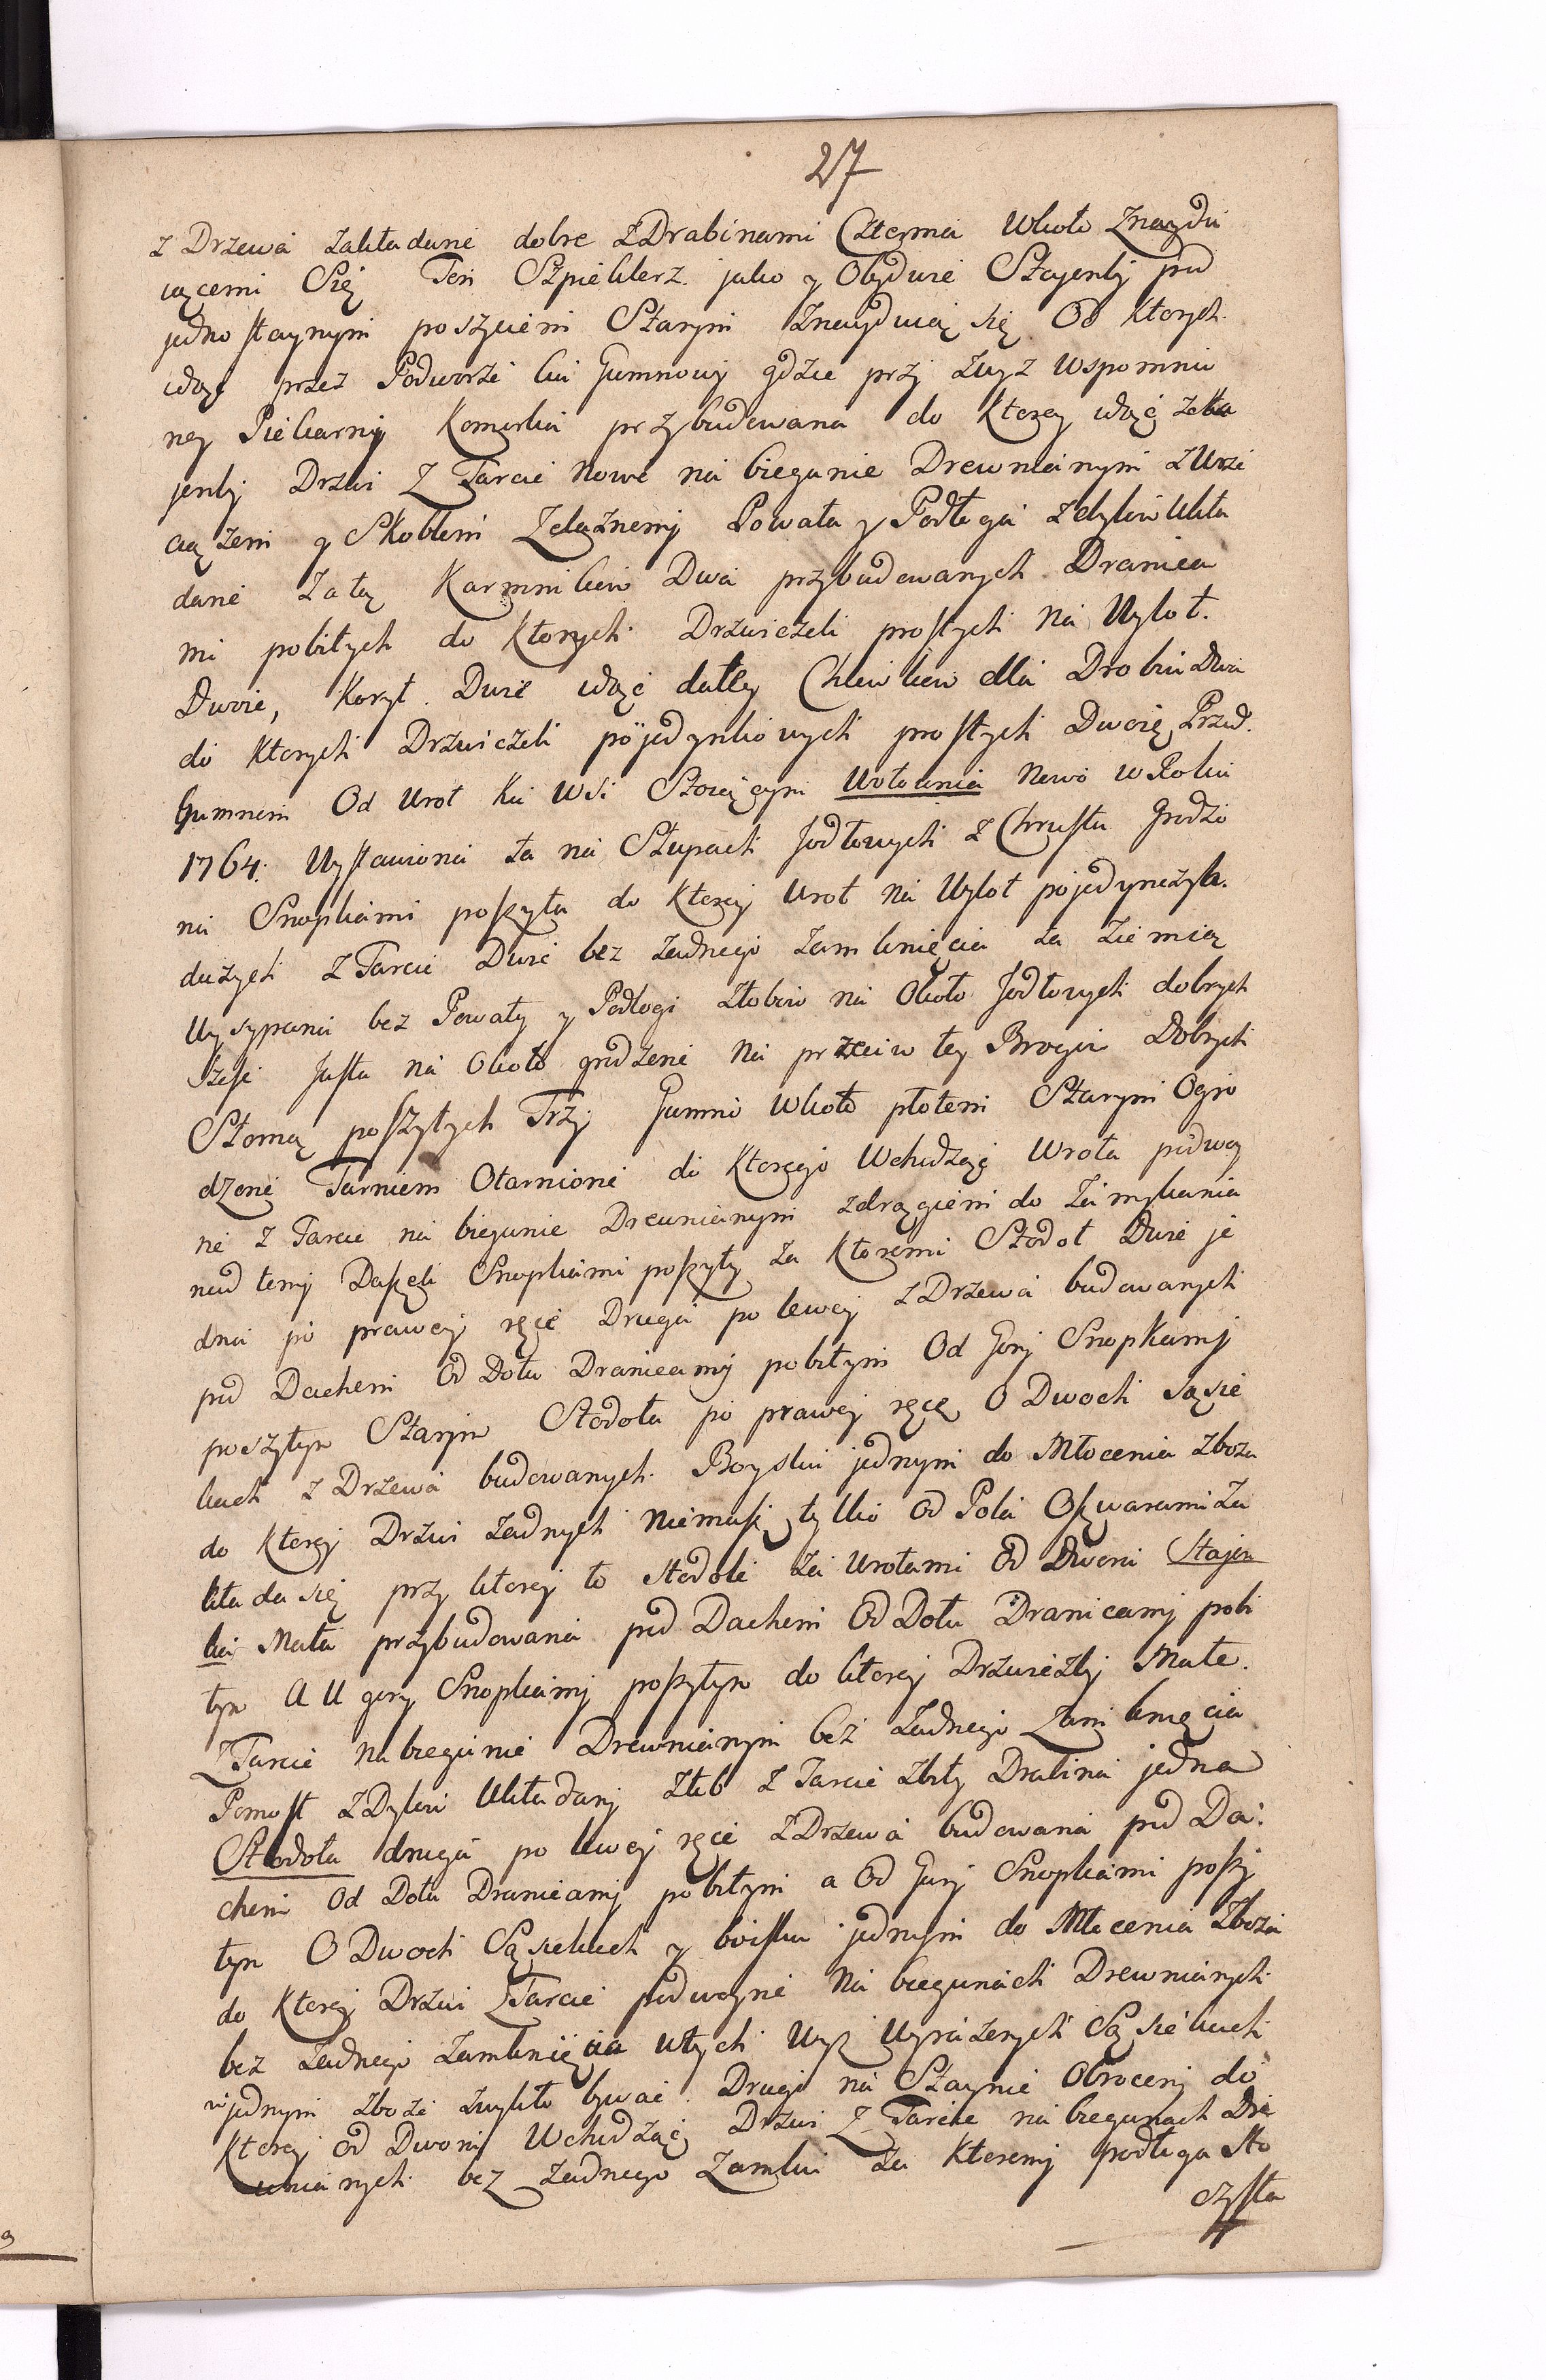 27
z Drzewa zakładane dobre z Drabinami Czterma wkoło Znaydu
iącemi Się Ten Szpieklerz jako y Obydwie Stayenki pod
jednostaynym poszyciem Starym znayduią się Od ktorych
idąc przez Podworze ku Gumnowi gdzie przy zwyz wspomnio
ney Piekarny Komorka przybudowana do Ktorey idąc zeSta
jenky Drzwi z Tarcic Nowe na biegunie Drewnianym zWrze
ciążem y Skoblem Zelaznemy Powała y Podłoga zdylow Ukła
dane Za tą Karmnikow Dwa przybudowanych Dranica
mi pobitych do Ktorych Drzwiczek prostych na Wylot
Dwoie, Koryt Dwie idąc daley Chliwkow dla Drobiu Dwa
do Ktorych Drzwiczek pojedynkowych prostych Dwoie Przed
Gumnem Od Wrot Ku Wsi Stoiącym Wołownia Nowa w Roku
1764. Wystawiona ta na Słupach Jodłowych z Chrustu Grodzo
na Snopkami poszyta do Ktorey Wrot na Wylot pojedynczych
duzych z Tarcic Dwie bez zadnego zamknięcia ta Ziemią
Wysypana bez Powały y Podłogi Złobow na Około Jodłowych dobrych
Szesc Jasła na Około grodzone Na przeciw tey Brogow Dobrych
Słomą poszytych Trzy Gumno Wkoło płotem Starym Ogro
dzone Tarniem Otarnione do Ktorego Wchodząc Wrota podwoy
ne z Tarcic na biegunie Drewnianym zdrągiem do Zamykania
nad temy Daszek Snopkami poszyty za Ktoremi Stodoł Dwie je
dna po prawey ręce Druga po lewey z Drzewa budowanych
pod Dachem Od Dołu Dranicamy pobitym Od Gory Snopkamy
poszytym Starym Stodoła po prawey ręce O Dwoch Sąsie
kach z Drzewa budowanych Boysku jednym do Młocenia Zboza
do Ktorey Drzwi Zadnych Niemasz tylko Od Pola Opwarami Za
kłada się przy ktorey to stodole za Wrotami Od Dwora Stajen
ka Mała przybudowana pod Dachem Od Dołu Dranicamy pobi
tym a U gory Snopkamy poszytym do ktorey Drzwiczky Małe
z Tarcic na biegunie Drewnianym bez Zadnego Zamknięcia
Pomost z Dylow Układany Złob z Tarcic Zbity Drabina jedna
Stodoła druga po lewey ręce z Drzewa budowana pod Da:
chem Od Dołu Dranicamy pobitym a Od Gory Snopkami poszy
tym O Dwoch Sąsiekach y boisku jednym do Młocenia Zboza
do Ktorey Drzwi z Tarcic podwoyne Na biegunach Drewnianych
bez Zadnego Zamknięcia wtych Wyz Wyrażonych Sąsiekach
w jednym Zboze zwykło bywac Drugi na Staynie Obrocony do
Ktorey Od Dwora Wchodząc Drzwi z Tarcic na biegunach Dre
wnianych bez Zadnego Zamku za Ktoremy podłoga Sto
czysta